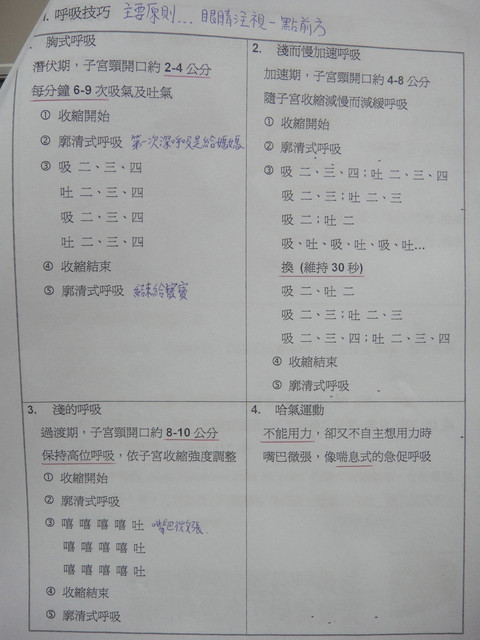 1. 呼吸技巧 主要原則... 眼睛注視一點前方
. 胸式呼吸
潛伏期，子宮頸開口約 2-4 公分
每分鐘 6-9 次吸氣及吐氣
① 收縮開始
② 廓清式呼吸 第一次深呼吸是給媽媽
③ 吸 二、三、四
吐 二、三、四
吸 二、三、四
吐 二、三、四
④ 收縮結束
⑤ 廓清式呼吸 結束給寶寶
2. 淺而慢加速呼吸
加速期，子宮頸開口約 4-8 公分
隨子宮收縮減慢而減緩呼吸
① 收縮開始
② 廓清式呼吸
③ 吸 二、三、四；吐 二、三、四
吸 二、三；吐 二、三
吸 二；吐 二
吸、吐、吸、吐、吸、吐...
換 (維持 30 秒)
吸 二、吐 二
吸 二、三；吐 二、三
吸 二、三、四；吐 二、三、四
④ 收縮結束
⑤ 廓清式呼吸
3. 淺的呼吸
過渡期，子宮頸開口約 8-10 公分
保持高位呼吸，依子宮收縮強度調整
① 收縮開始
② 廓清式呼吸
③ 嘻 嘻 嘻 嘻 吐 嘴巴微張
嘻 嘻 嘻 嘻 吐
嘻 嘻 嘻 嘻 吐
④ 收縮結束
⑤ 廓清式呼吸
4. 哈氣運動
不能用力，卻又不自主想用力時
嘴巴微張，像喘息式的急促呼吸